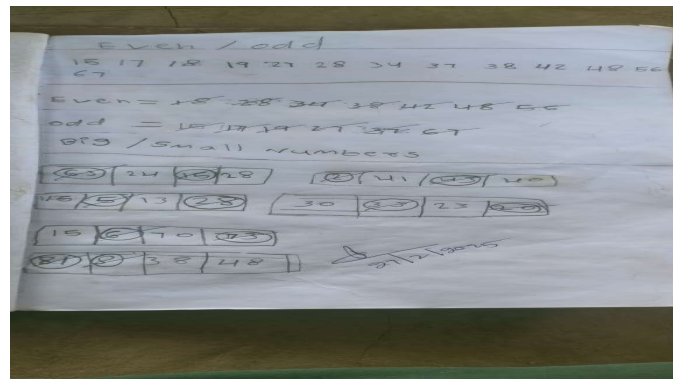 Even / odd
15 17 18 19 27 28 34 37 38 42 48 56
67
Even = 18 28 34 38 42 48 56
odd = 15 17 19 27 37 67
Big / Small numbers
63 24 28 2 41 40
5 13 28 30 23
15 6 90 93
81 2 38 48
27/2/2025